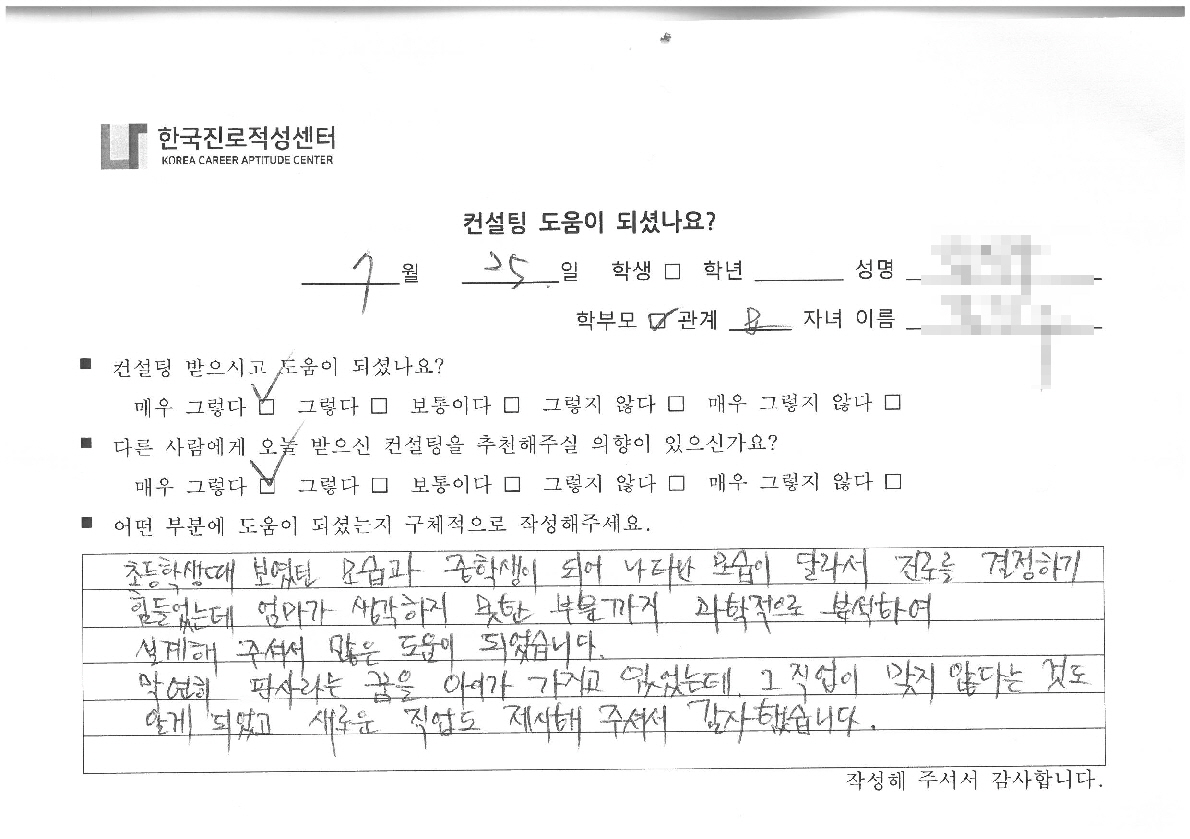 한국진로적성센터
KOREA CAREER APTITUDE CENTER
컨설팅 도움이 되셨나요?
7 월 25 일 학생 □ 학년 성명
학부모 ☑ 관계 모 자녀 이름
■ 컨설팅 받으시고 도움이 되셨나요?
매우 그렇다 ☑ 그렇다 □ 보통이다 □ 그렇지 않다 □ 매우 그렇지 않다 □
■ 다른 사람에게 오늘 받으신 컨설팅을 추천해주실 의향이 있으신가요?
매우 그렇다 ☑ 그렇다 □ 보통이다 □ 그렇지 않다 □ 매우 그렇지 않다 □
■ 어떤 부분에 도움이 되셨는지 구체적으로 작성해주세요.
초등학생때 보였던 모습과 중학생이 되어 나타난 모습이 달라서 진로를 결정하기
힘들었는데 엄마가 생각하지 못한 부분까지 과학적으로 분석하여
설계해 주셔서 많은 도움이 되었습니다.
막연히 판사라는 꿈을 아이가 가지고 있었는데 그 직업이 맞지 않다는 것도
알게 되었고 새로운 직업도 제시해 주셔서 감사했습니다.
작성해 주셔서 감사합니다.